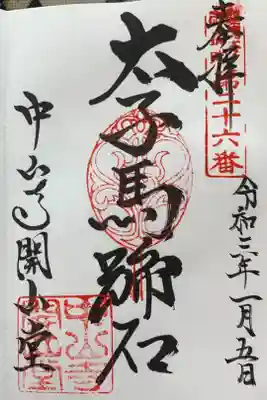 奉拝
第二十六番
令和三年一月五日
太子馬蹄石
中山寺開山堂